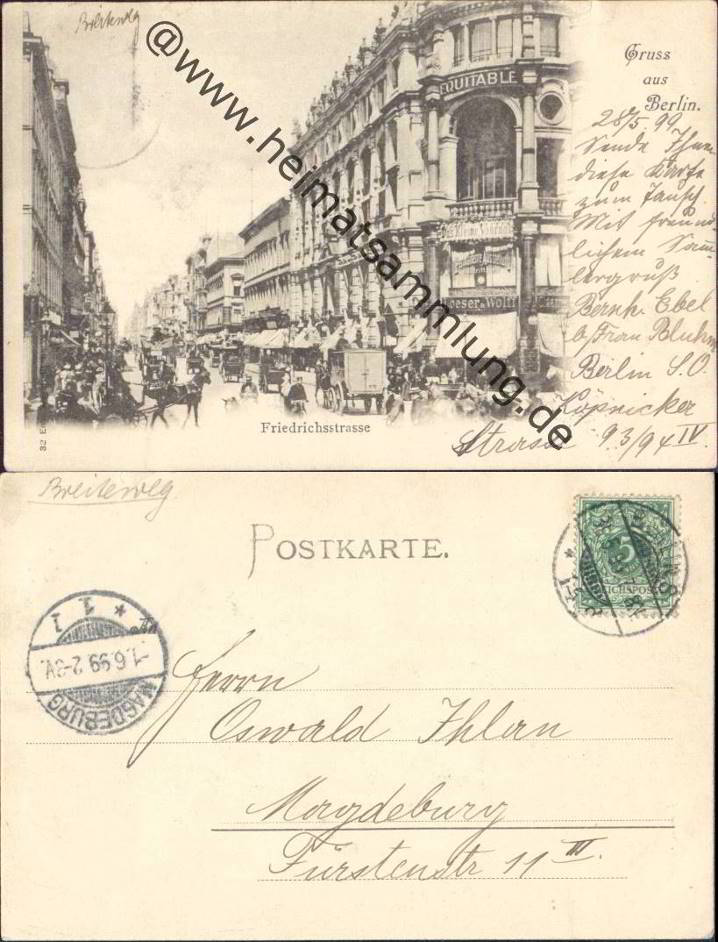 Breiteweg
Gruss
aus
Berlin.
28/5.99.
Sende Ihnen
diese Karte
zum Tausch
Mit freund-
lichem Sam-
lergruß
Bernh. Ebel
b/Frau Bluhm
Berlin S.O.
Köpnicker
Strasse 93/94 IV
EQUITABLE
Loeser & Wolff
Friedrichsstrasse
32
@www.heimatsammlung.de
Breiteweg
POSTKARTE.
REICHSPOST
5
MAGDEBURG
-1.6.99.2-3V.
* 1 1
Herrn
Oswald Ihlan
Magdeburg
Fürstenstr 11 III.